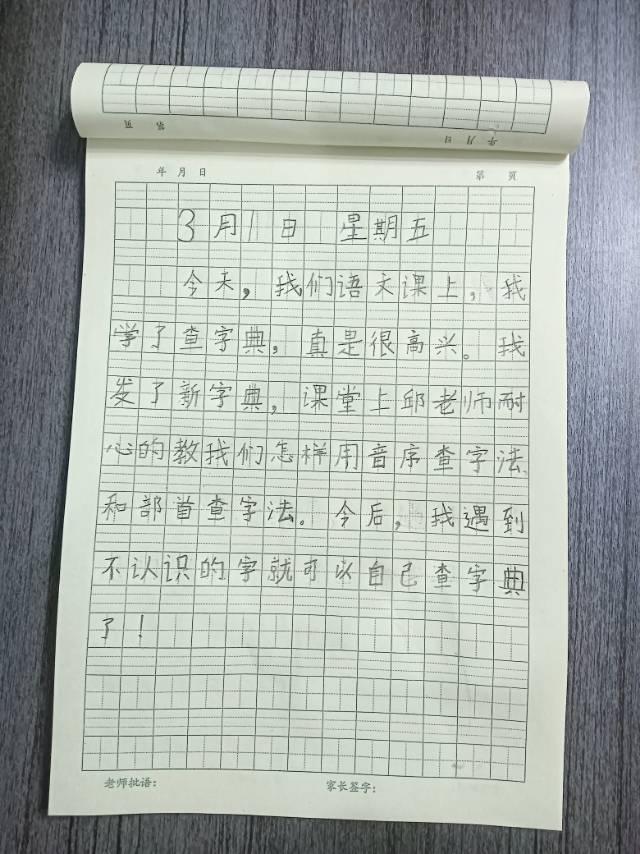 第 页
年 月 日
年 月 日
第 页
3月1日 星期五
今天，我们语文课上，我
学了查字典，真是很高兴。我
发了新字典，课堂上邱老师耐
心的教我们怎样用音序查字法
和部首查字法。今后，我遇到
不认识的字就可以自己查字典
了！
老师批语：
家长签字：